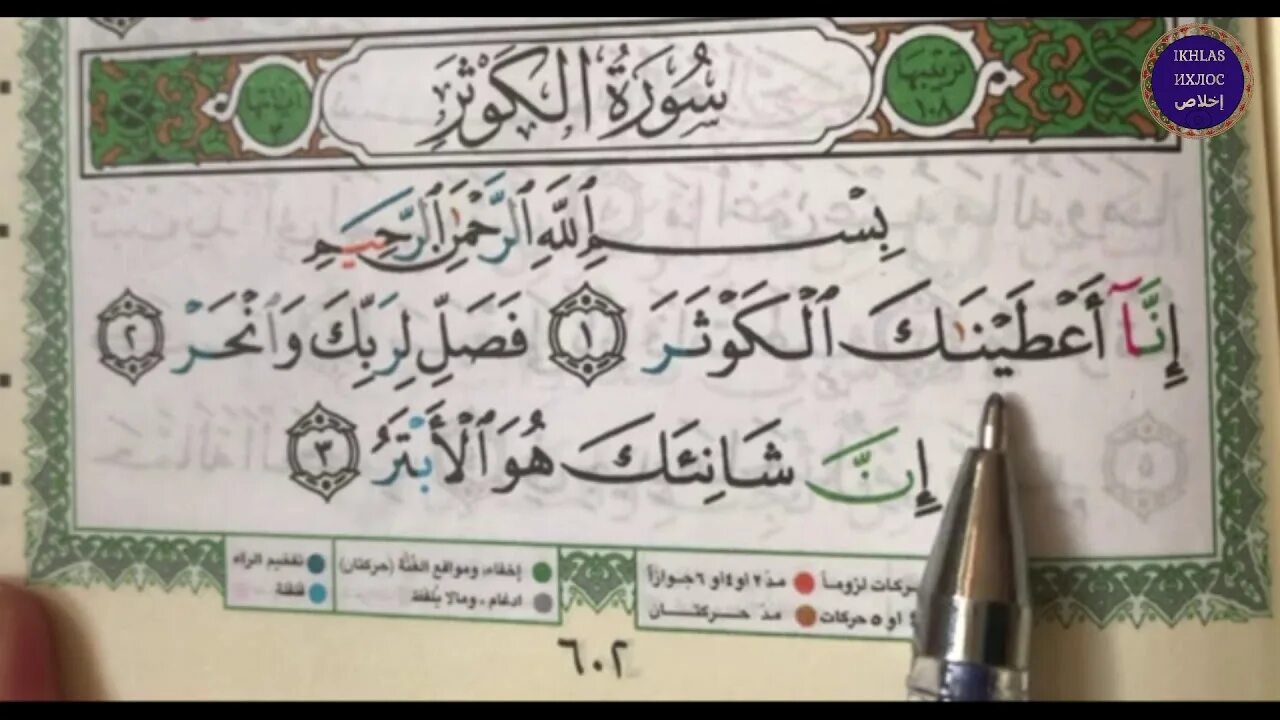 IKHLAS
ИХЛОС
إخلاص
سُورَةُ الْكَوْثَرِ
ترتيبها
١٠٨
آياتها
٣
بِسْمِ ٱللَّهِ ٱلرَّحْمَٰنِ ٱلرَّحِيمِ
إِنَّآ أَعْطَيْنَٰكَ ٱلْكَوْثَرَ ١ فَصَلِّ لِرَبِّكَ وَٱنْحَرْ ٢
إِنَّ شَانِئَكَ هُوَ ٱلْأَبْتَرُ ٣
ـركات لزوماً مدّ ٢ او ٤ او ٦ جوازاً
٤ او ٥ حركات مدّ حركتان
إخفاء، ومواقع الغُنَّة (حركتان)
ادغام، ومالا يُلفظ
تفخيم الراء
قلقلة
٦٠٢